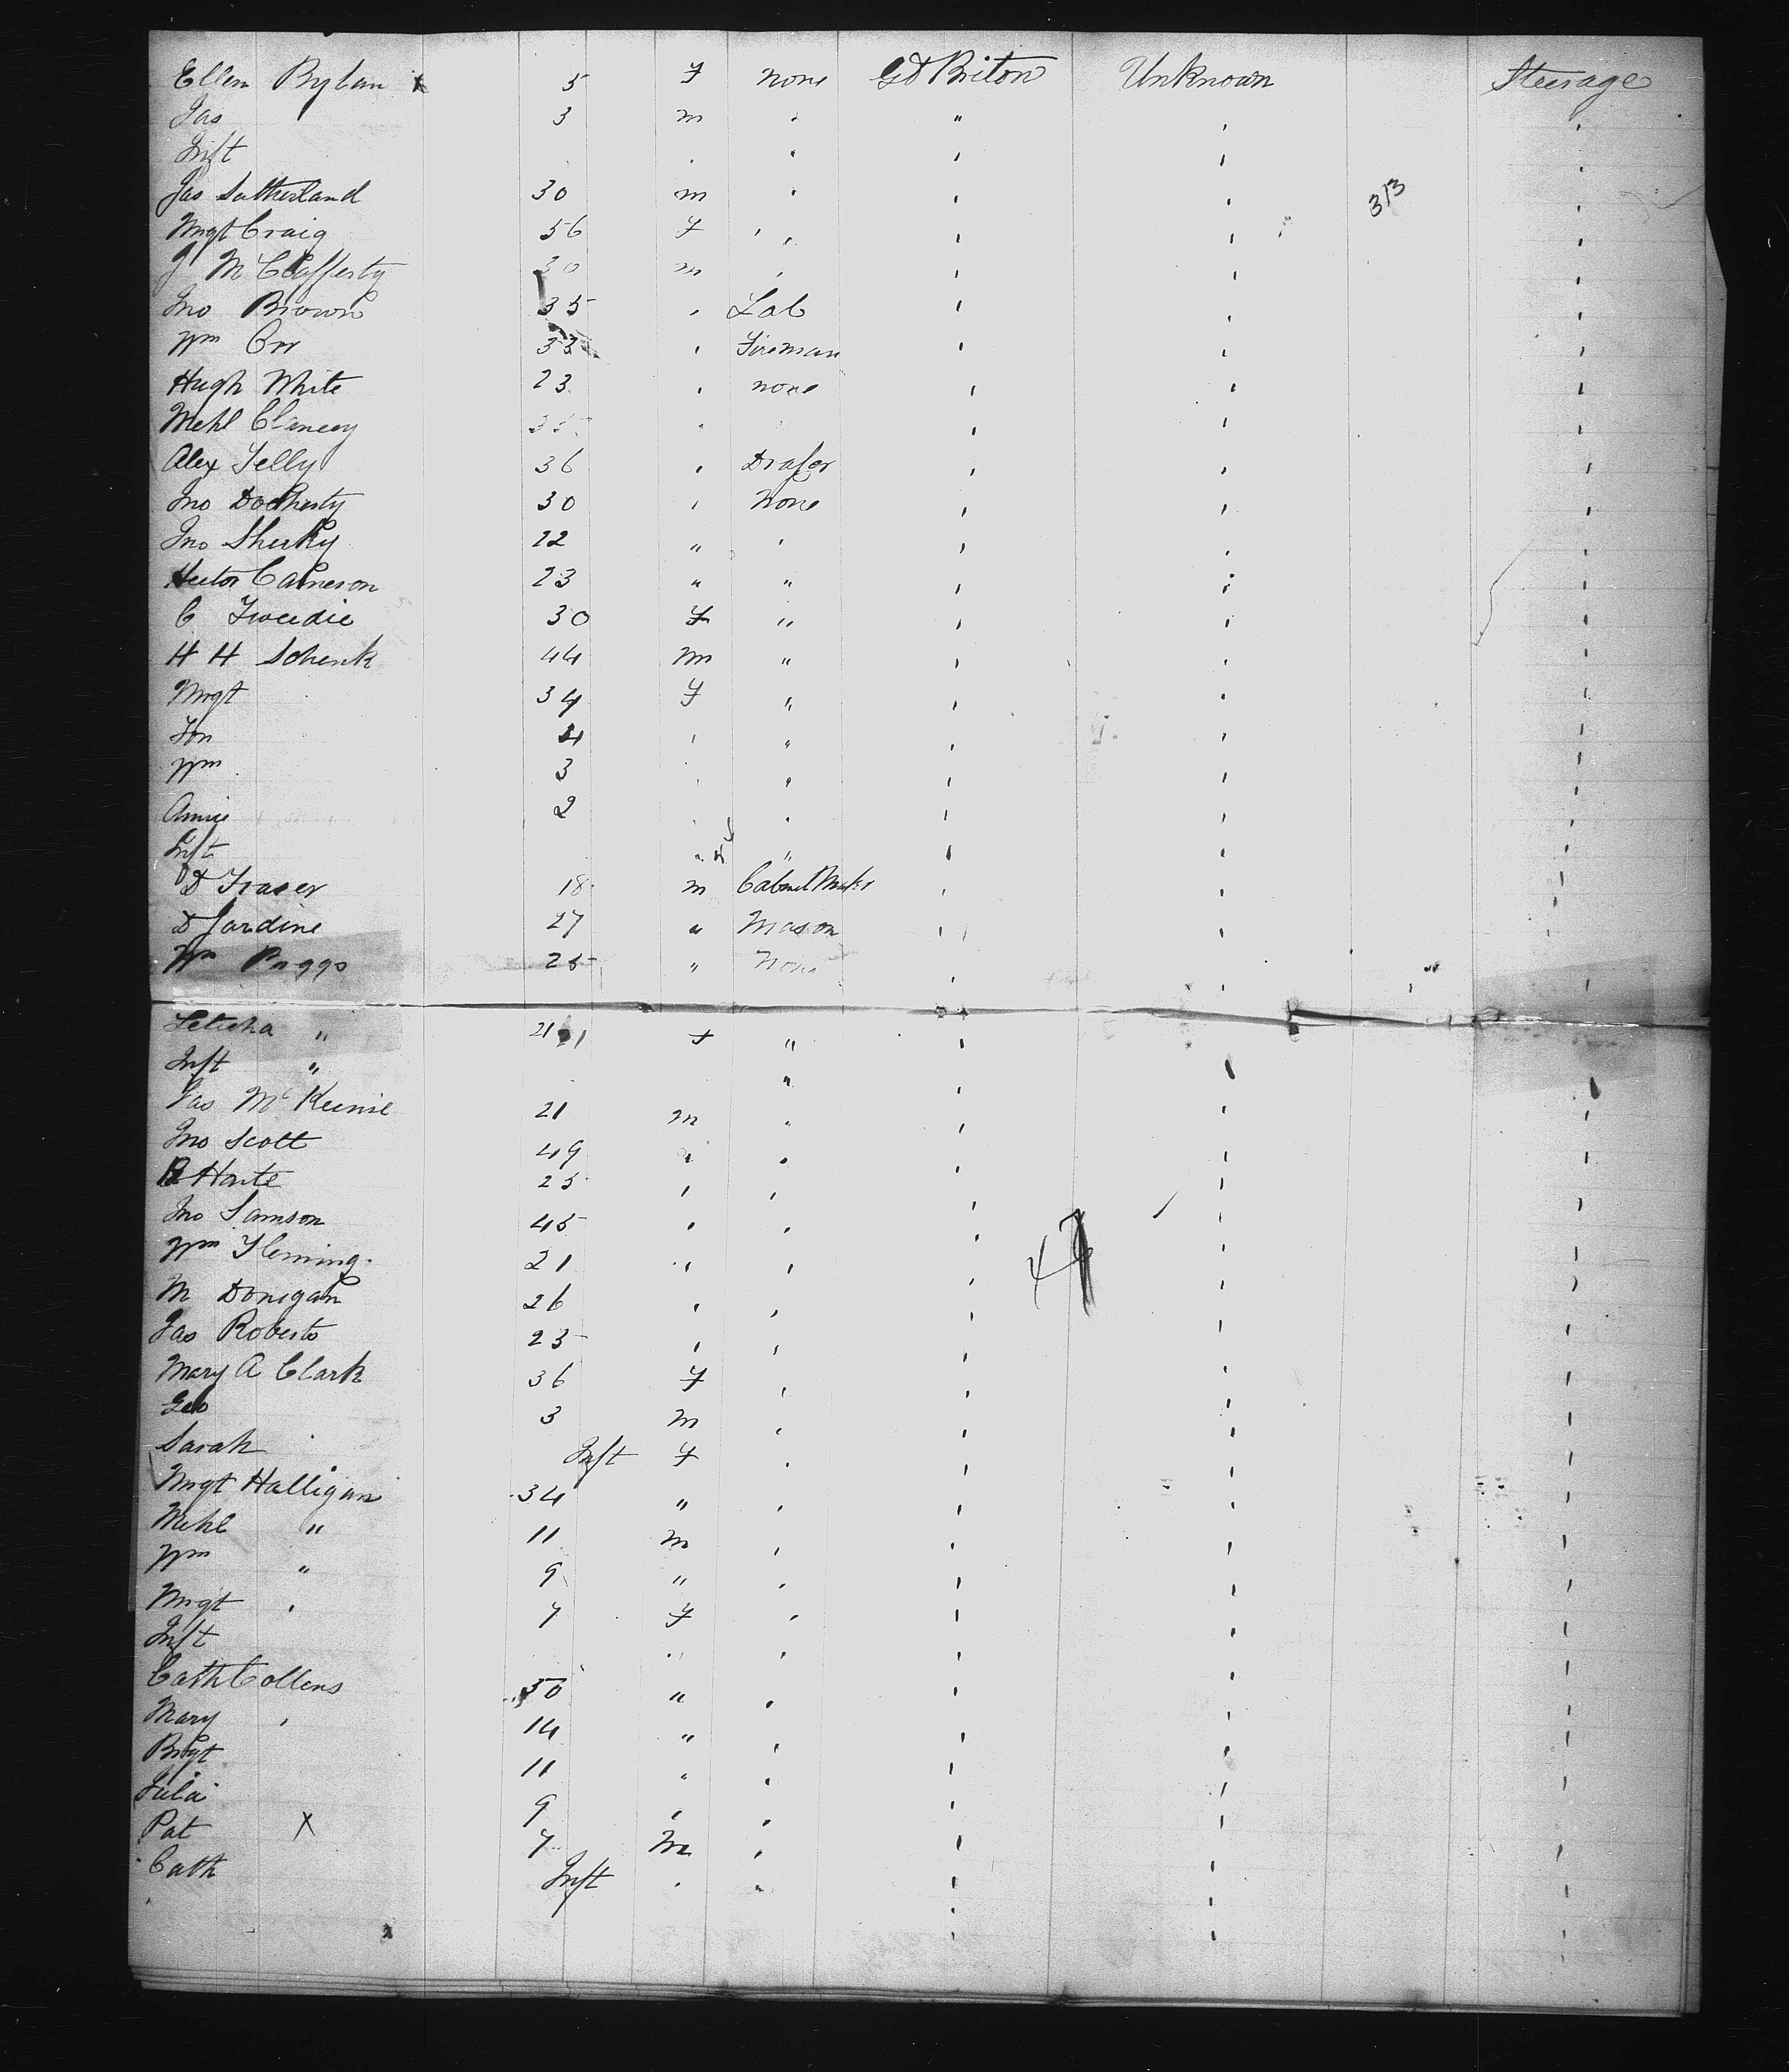 Ellen Bylan x 5 F none Gt Briton Unknown Steerage
Jas 3 m " " " "
Inft " " " " "
Jas Sutherland 30 m " " " 313 "
Mrgt Craig 56 F " " " "
J McClafferty 30 m " " " "
Jno Brown 35 " Lab " " "
Wm Orr 33 " Fireman " " "
Hugh White 23 " none " " "
Mchl Clancey 35 " " " "
Alex Selly 36 " Draper " " "
Jno Docherty 30 " None " " "
Jno Sherky 22 " " " " "
Hector Cameron 23 " " " " "
C Tweedie 30 F " " " "
H H Schenk 44 m " " " "
Mrgt 34 F " " " "
4 " " " " "
Wm 3 " " " " "
Annie 2 " " " " "
Inft " " " " "
D Fraser 18 m Cabinet Makr " " "
D Jardine 27 " Mason " " "
Wm Briggs 25 " None " " "
Leticha " 21 F " " " "
Inft " " " " "
Jas McKenzie 21 m " " " "
Jno Scott 49 " " " " "
Harte 25 " " " " "
Jno Samson 45 " " " " "
Wm Fleming 21 " " " 47 " "
M Donigan 26 " " " " "
Jas Roberts 25 " " " " "
Mary A Clark 36 F " " " "
Geo 3 m " " " "
Sarah Inft F " " " "
Mrgt Halligan 34 " " " " "
Mchl " 11 m " " " "
Wm " 9 " " " " "
Mrgt " 7 F " " " "
Inft " " " " "
Cath Collens 30 " " " " "
Mary " 14 " " " " "
Brgt 11 " " " " "
Julia 9 " " " " "
Pat X 7 m " " " "
Cath Inft " " " " "